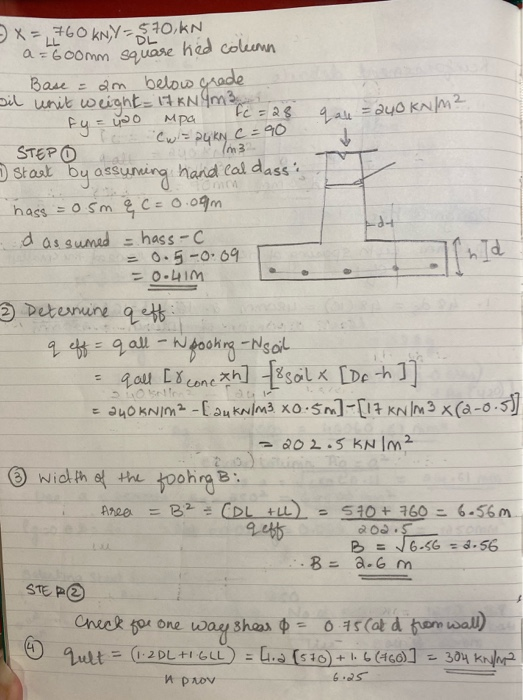 X = 760 KN, Y = 570 KN
LL DL
a = 600mm square tied column
Base = 2m below grade
oil unit weight = 17 KN/m3
Fy = 420 MPa Fc = 28 q all = 240 KN/m2
Cw = 24KN/m3 C = 90
STEP ①
① Start by assuming h and cal dass:
hass = 0.5m & C = 0.09m
d assumed = hass - C
= 0.5 - 0.09
= 0.41m
d
h d
② Determine q eff:
q eff = q all - W footing - W soil
= q all [γ conc × h] - [γ soil × [Df - h]]
= 240 KN/m2 - [24 KN/m3 × 0.5m] - [17 KN/m3 × (2-0.5)]
= 202.5 KN/m2
③ Width of the footing B:
Area = B2 = (DL + LL) / q eff = 570 + 760 / 202.5 = 6.56m
B = √6.56 = 2.56
∴ B = 2.6 m
STEP ②
Check for one way shear ϕ = 0.75 (at d from wall)
④ qult = (1.2DL + 1.6LL) / A prov = [1.2 (570) + 1.6 (760)] / 6.25 = 304 KN/m2